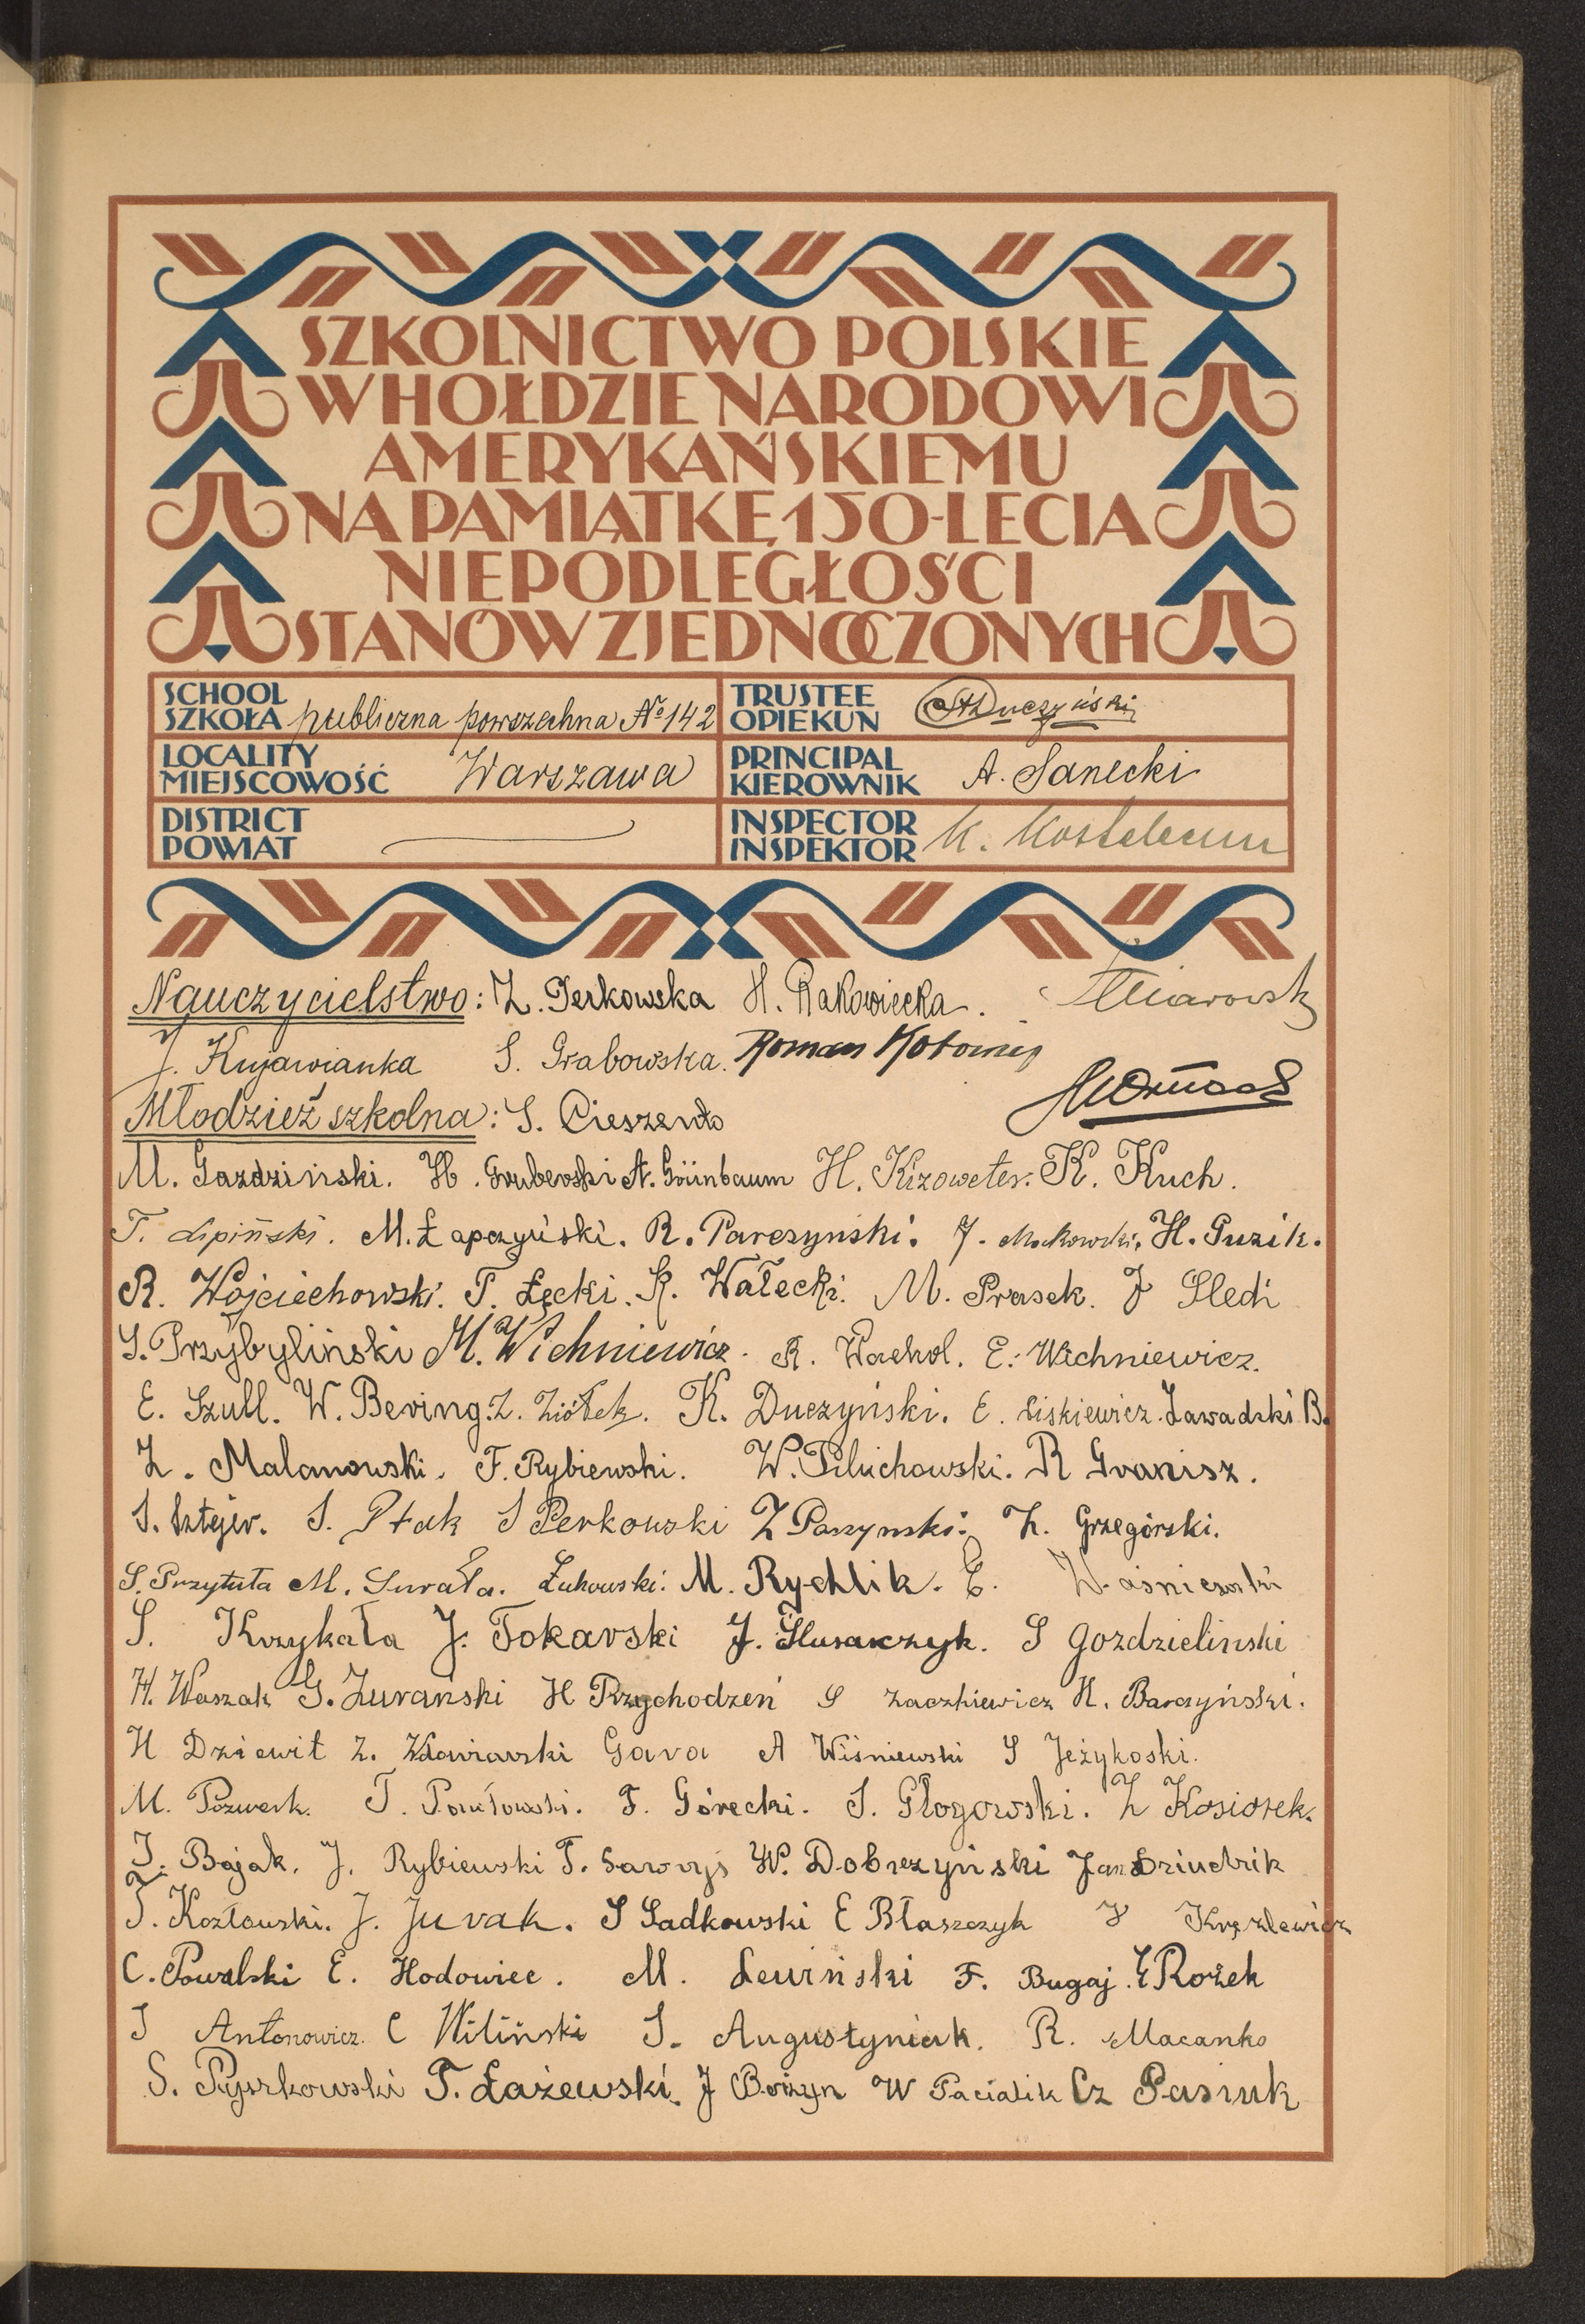 SZKOLNICTWO POLSKIE
W HOŁDZIE NARODOWI
AMERYKAŃSKIEMU
NA PAMIĄTKĘ 150-LECIA
NIEPODLEGŁOŚCI
STANÓW ZJEDNOCZONYCH
SCHOOL
SZKOŁA publiczna powszechna № 142
TRUSTEE
OPIEKUN St Duczyński
LOCALITY
MIEJSCOWOŚĆ Warszawa
PRINCIPAL
KIEROWNIK A. Sanecki
DISTRICT
POWIAT
INSPECTOR
INSPEKTOR K.
Nauczycielstwo: Z. Perkowska H. Rakowiecka.
J. Kujawianka S. Grabowska. Roman
Młodzież szkolna: S.
M. Gazdziński. H. Gruberski A. Grünbaum H. Kizoweter. K. Kuch.
T. Lipiński. M. Łapczyński. R. Parczyński. J. Makowski. H. Guzik.
R. Wojciechowski. T. Łęcki. K. Wałecki. M. Prasek. J Sledź
S. Przybyliński M. Wichniewicz. R. Wachol. E. Wichniewicz.
E. Szull. W. Bering. Z. Ziółek. K. Duczyński. E. Liskiewicz. Zawadzki B.
Z. Malanowski. F. Rybiewski. W. Piluchowski. R Granisz.
S. Sztejer. S. Ptak S Perkowski Z Paszyński. Z. Grzegórski.
S. Przytuła M. Surała. Żukowski. M. Rychlik. E. Waśniewski
S. Krzykała J. Tokarski J. Ślusarczyk. S Gozdzieliński
H. Waszak G. Żurański H Przychodzeń S Zaczkiewicz H. Barczyński.
H Dziewit Z. Gara A Wiśniewski S Jeżykoski.
M. Pozwerk. T. Pawłowski. F. Górecki. S. Głogowski. Z Kosiorek.
J. Bajak. J. Rybiewski T. W. Dobrzyński Jan
T. Kozłowski. J. Jurak. S Sadkowski E Błaszczyk J Kręzlewicz
C. Powalski E. Hodowiec. M. Lewiński F. Bugaj. E Rożek
J Antonowicz. C Wiliński S. Augustyniak. R. Macanko
S. Pyszkowski T. Łażewski. J Borzyn W Pacialik Cz Pasiuk